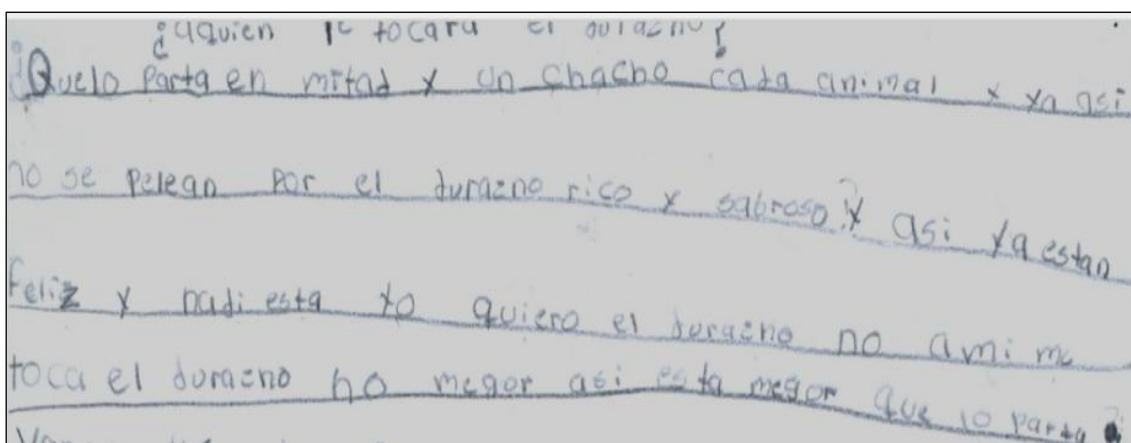 ¿aquien le tocara el durazno?
¿Quelo Parta en mitad y un chacho cada animal y ya asi
no se pelean Por el durazno rico y sabroso? y asi ya estan
feliz y nadi esta yo quiero el durazno no ami me
toca el durazno no megor asi esta megor que lo parta